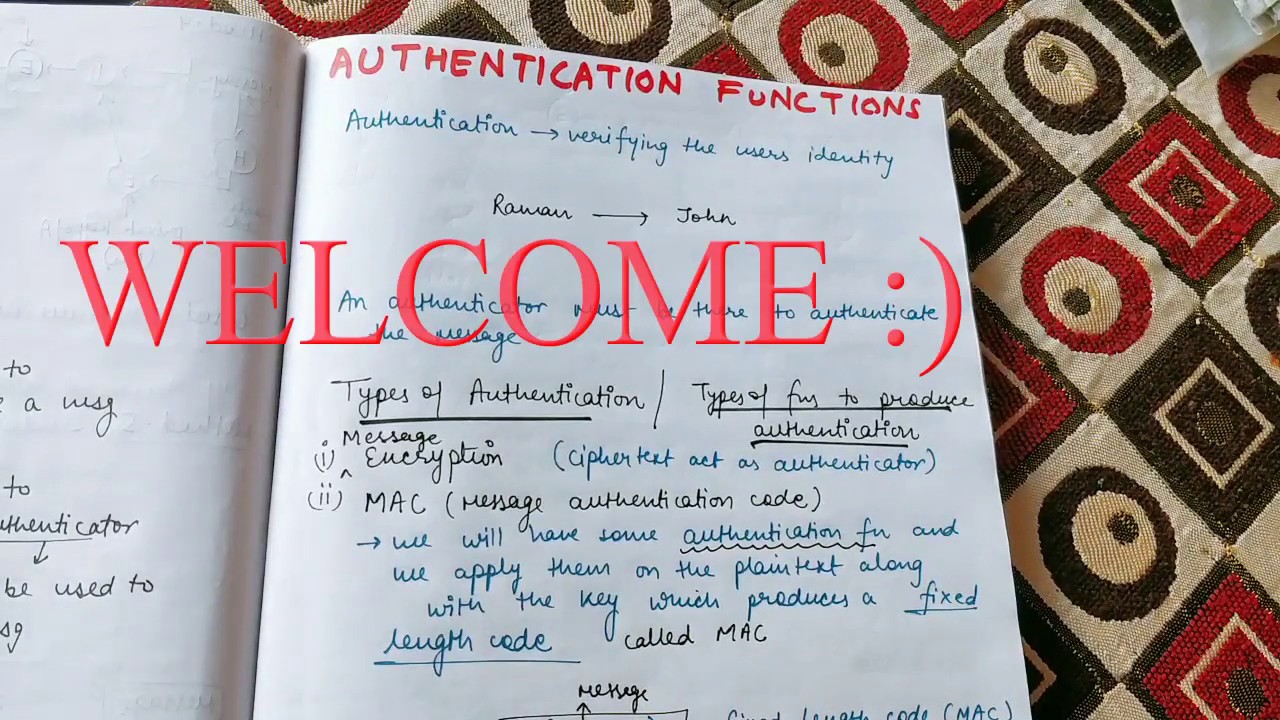 AUTHENTICATION FUNCTIONS
Authentication → verifying the users identity
Raman → John
WELCOME :)
An authenticator must be there to authenticate
the message
Types of Authentication / Types of fns to produce
authentication
Message
(i) ^ Encryption (ciphertext act as authenticator)
(ii) MAC (message authentication code)
→ we will have some authentication fn and
we apply them on the plaintext along
with the key which produces a fixed
length code called MAC
message
fixed length code (MAC)
to
a msg
to
uthenticator
be used to
sg